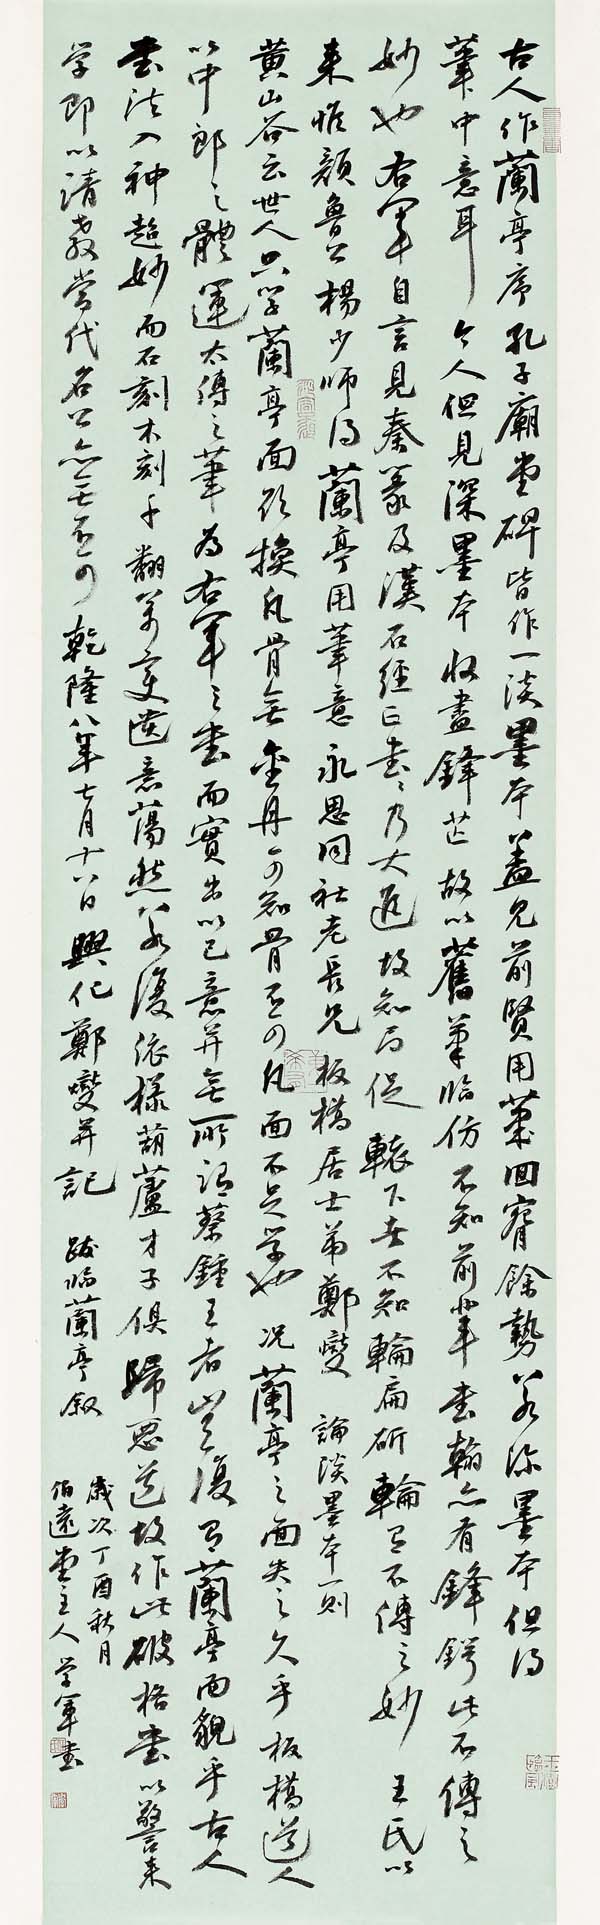 古人作蘭亭序孔子廟堂碑皆作一淡墨本蓋見前賢用筆回窅餘勢若深墨本但得
筆中意耳今人但見深墨本收盡鋒芒故以舊筆臨仿不知前輩書翰亦有鋒鍔此不傳之
妙也右軍自言見秦篆及漢石經正書書乃大進故知局促轅下者不知輪扁斫輪有不傳之妙王氏以
来惟顏魯公楊少師得蘭亭用筆意永思同社老長兄板橋居士弟鄭燮論淡墨本一則
黃山谷云世人只学蘭亭面欲換凡骨無金丹可知骨不可凡面不足学也况蘭亭之面失之久乎板橋道人
以中郎之體運太傅之筆為右軍之書而實出以己意并無所謂蔡鍾王者豈復有蘭亭面貌乎古人
書法入神超妙而石刻木刻千翻萬变遺意蕩然若復依樣葫蘆才子俱歸惡道故作此破格書以警来
学即以請教當代名公亦無不可乾隆八年七月十八日興化鄭燮并記跋臨蘭亭叙
歲次丁酉秋月
伯遠堂主人学軍書